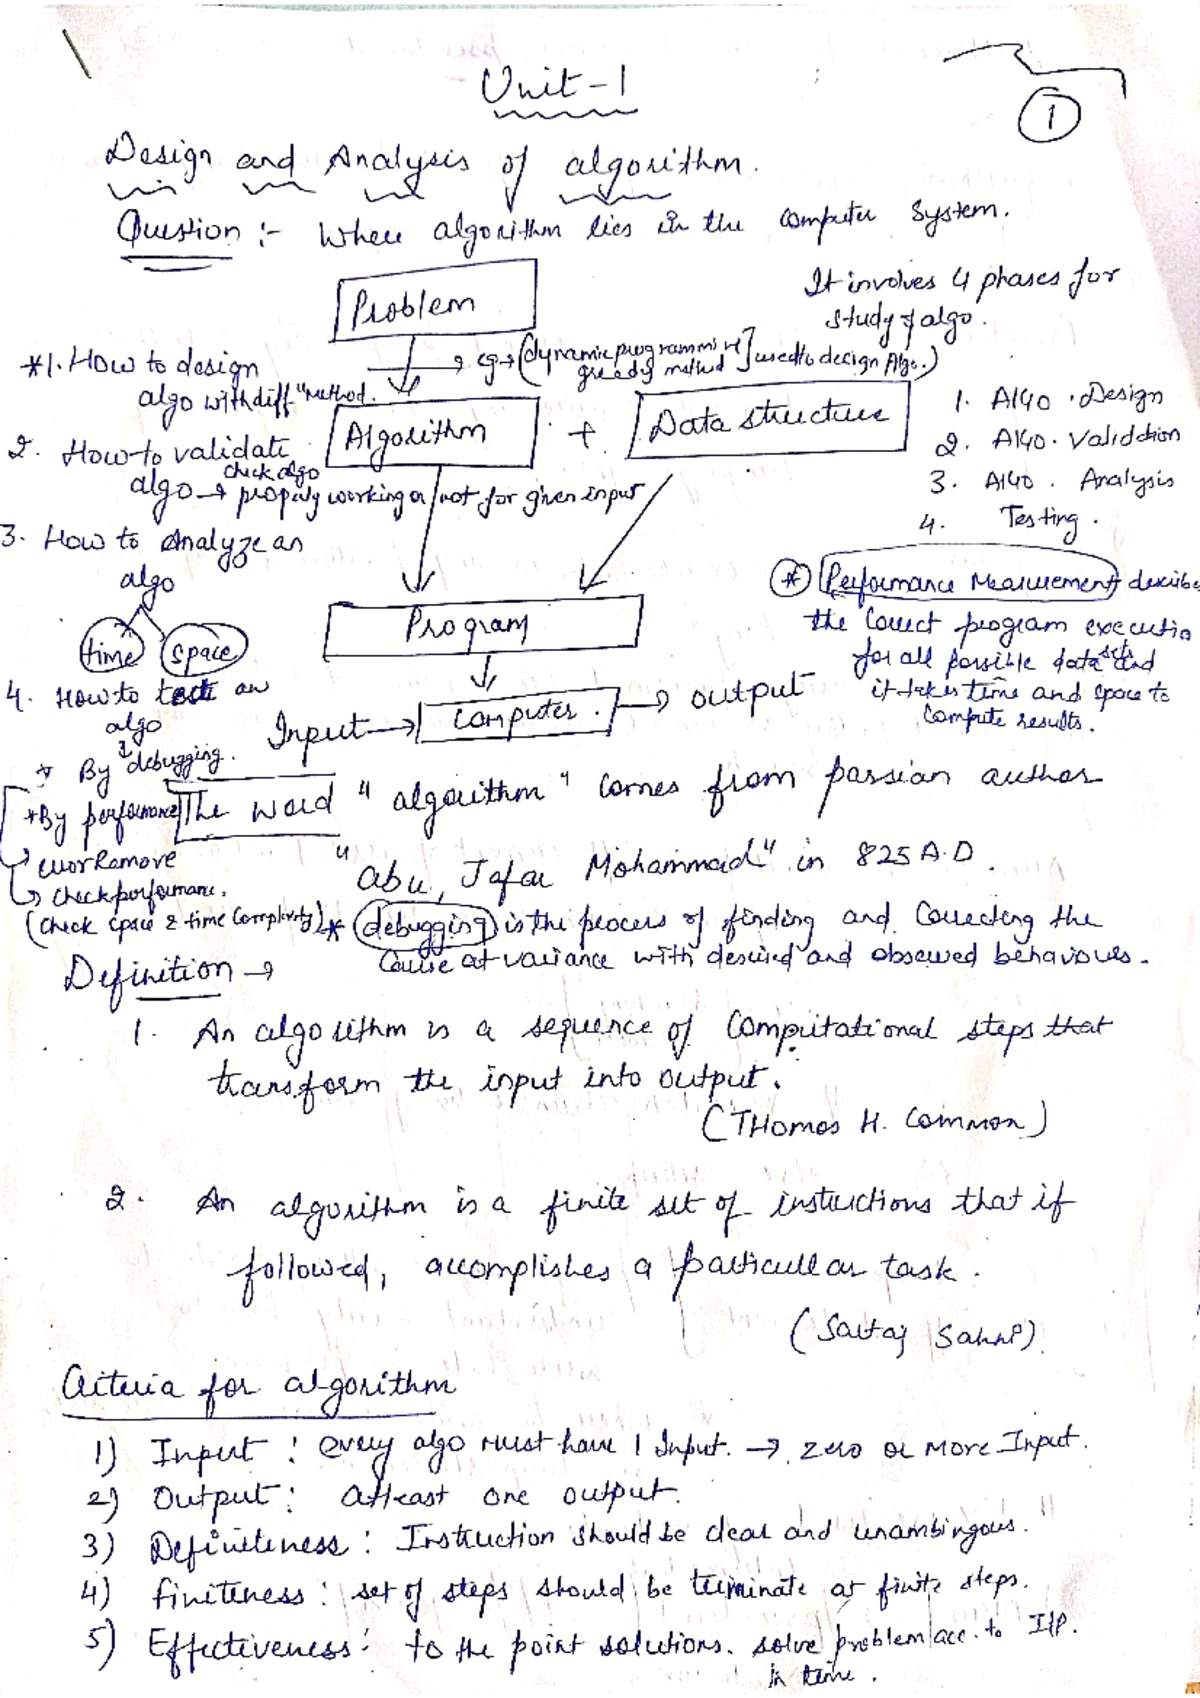 Unit-1
1
Design and Analysis of algorithm.
Question :- Where algorithm lies in the computer system.
Problem
It involves 4 phases for
study of algo.
*1. How to design
algo with diff "Method.
→ eg → (dynamic programming
greedy method ] used to design Algo.)
Algorithm + Data structure
1. Algo. Design
2. Algo. Validction
3. Algo. Analysis
4. Testing.
2. How to validate
check algo
algo → properly working or not for given input
3. How to Analyze an
algo
time space
Program
* Performance Measurement describe
the Correct program executio
for all possible data sets and
it takes time and space to
Compute results.
4. How to test an
algo
Input → Computer. → output
* By debugging.
*By performance
work more
Check performance.
(Check space & time Complexity)
The word "algorithm" comes from parsian author
"abu, Jafar Mohammad" in 825 A.D.
* debugging is the process of finding and Correcting the
Cause at variance with desired and observed behaviours.
Definition →
1. An algorithm is a sequence of Computational steps that
transform the input into output.
(THomas H. Common)
2. An algorithm is a finite set of instructions that if
followed, accomplishes a particullar task.
(Sartaj Sahni).
Criteria for algorithm
1) Input : every algo must have 1 Input. → zero or More Input.
2) Output : Atleast one output.
3) Definiteness : Instruction should be clear and unambingous.
4) finiteness : set of steps should be terminate at finite steps.
5) Effectiveness : to the point solutions. solve problem acc. to I/P.
in time.